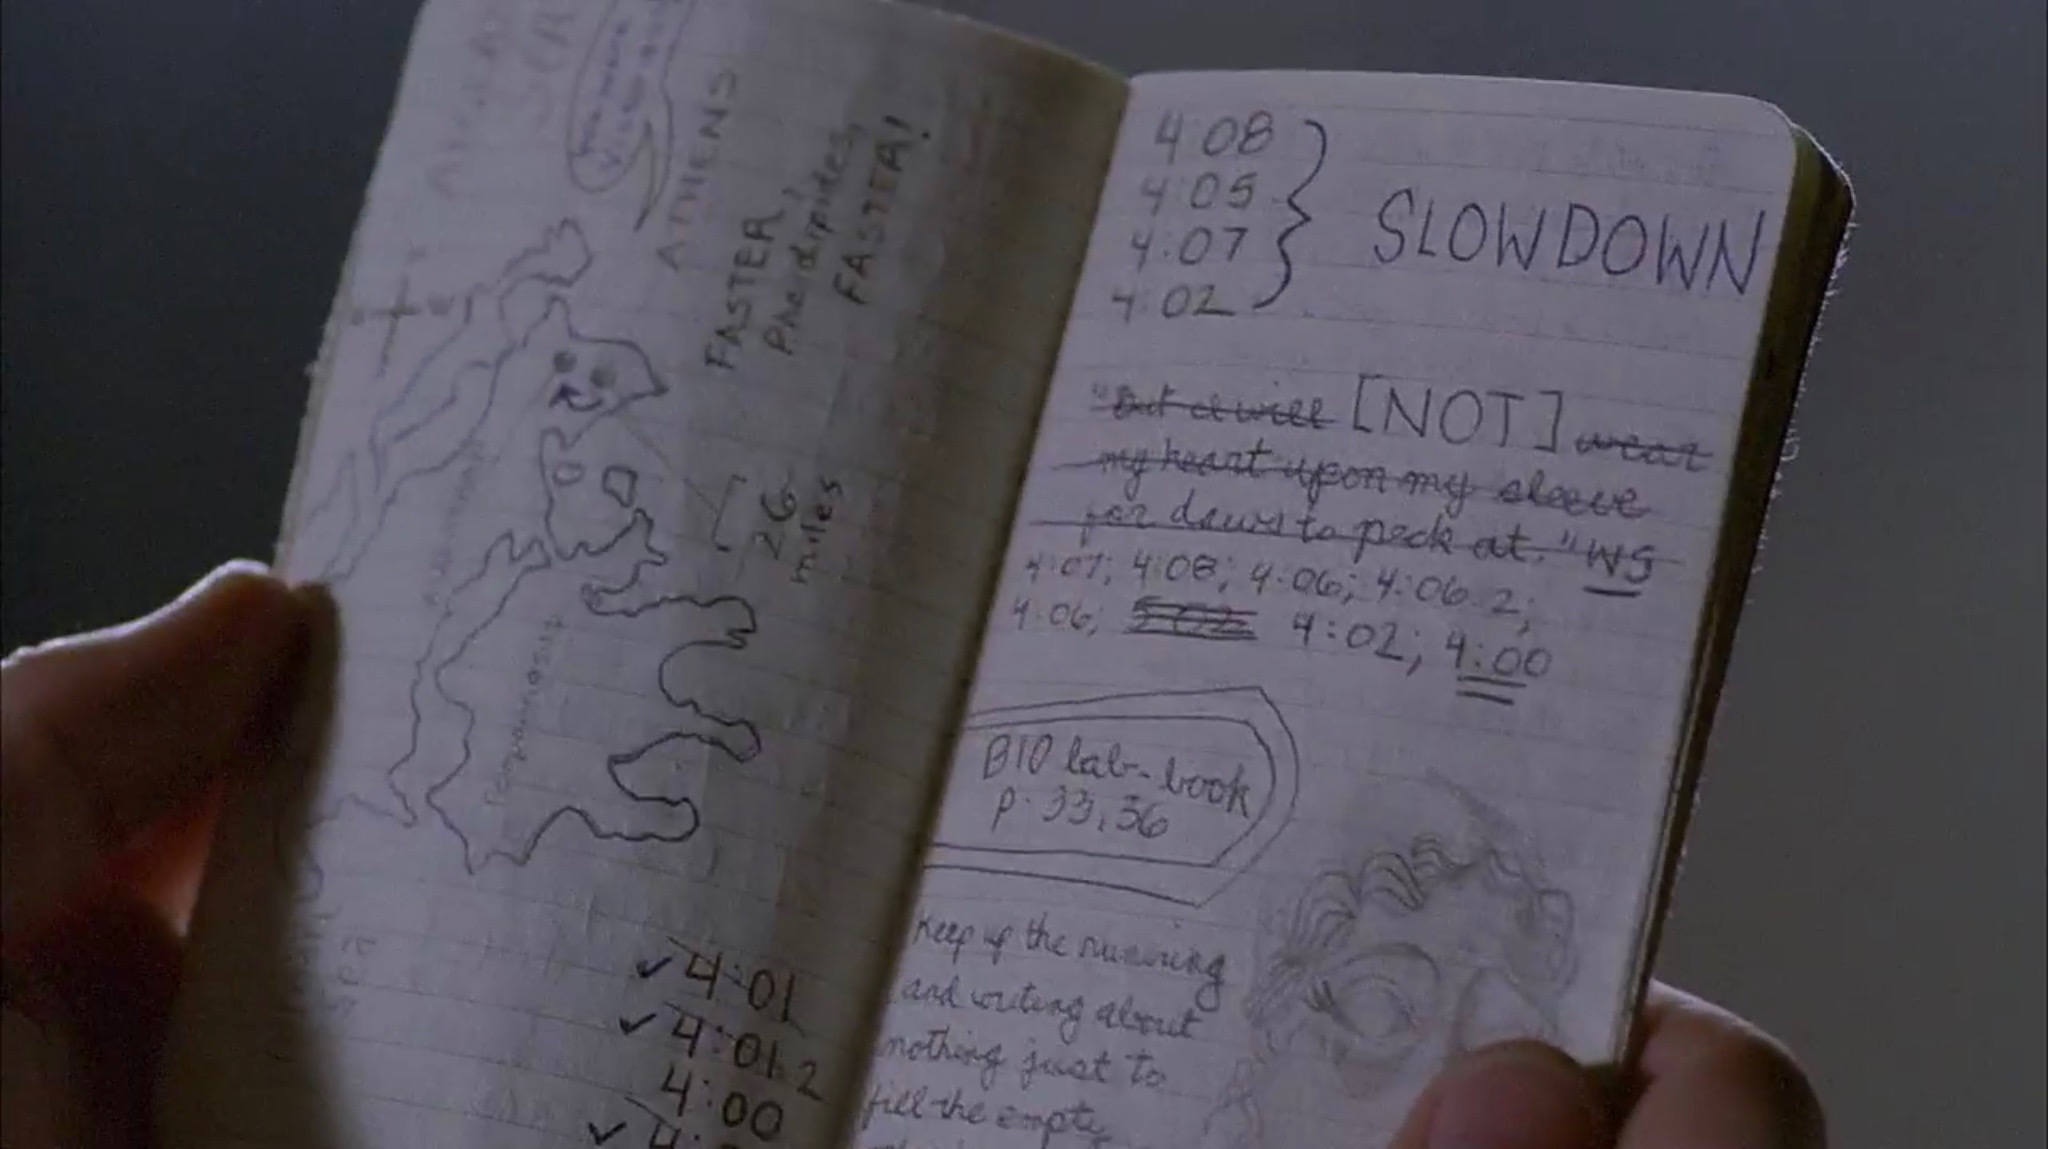 ATHENS
FASTER,
Phidippides,
FASTER!
26
miles
4:01
4:01.2
4:00
4:08
4:05
4:07
4:02
SLOWDOWN
"But I will [NOT] wear
my heart upon my sleeve
for daws to peck at." WS
4:07; 4:08; 4:06; 4:06.2;
4:06; 4:02; 4:00
BIO lab-book
p. 33, 36
Keep up the running
and writing about
nothing just to
fill the empty